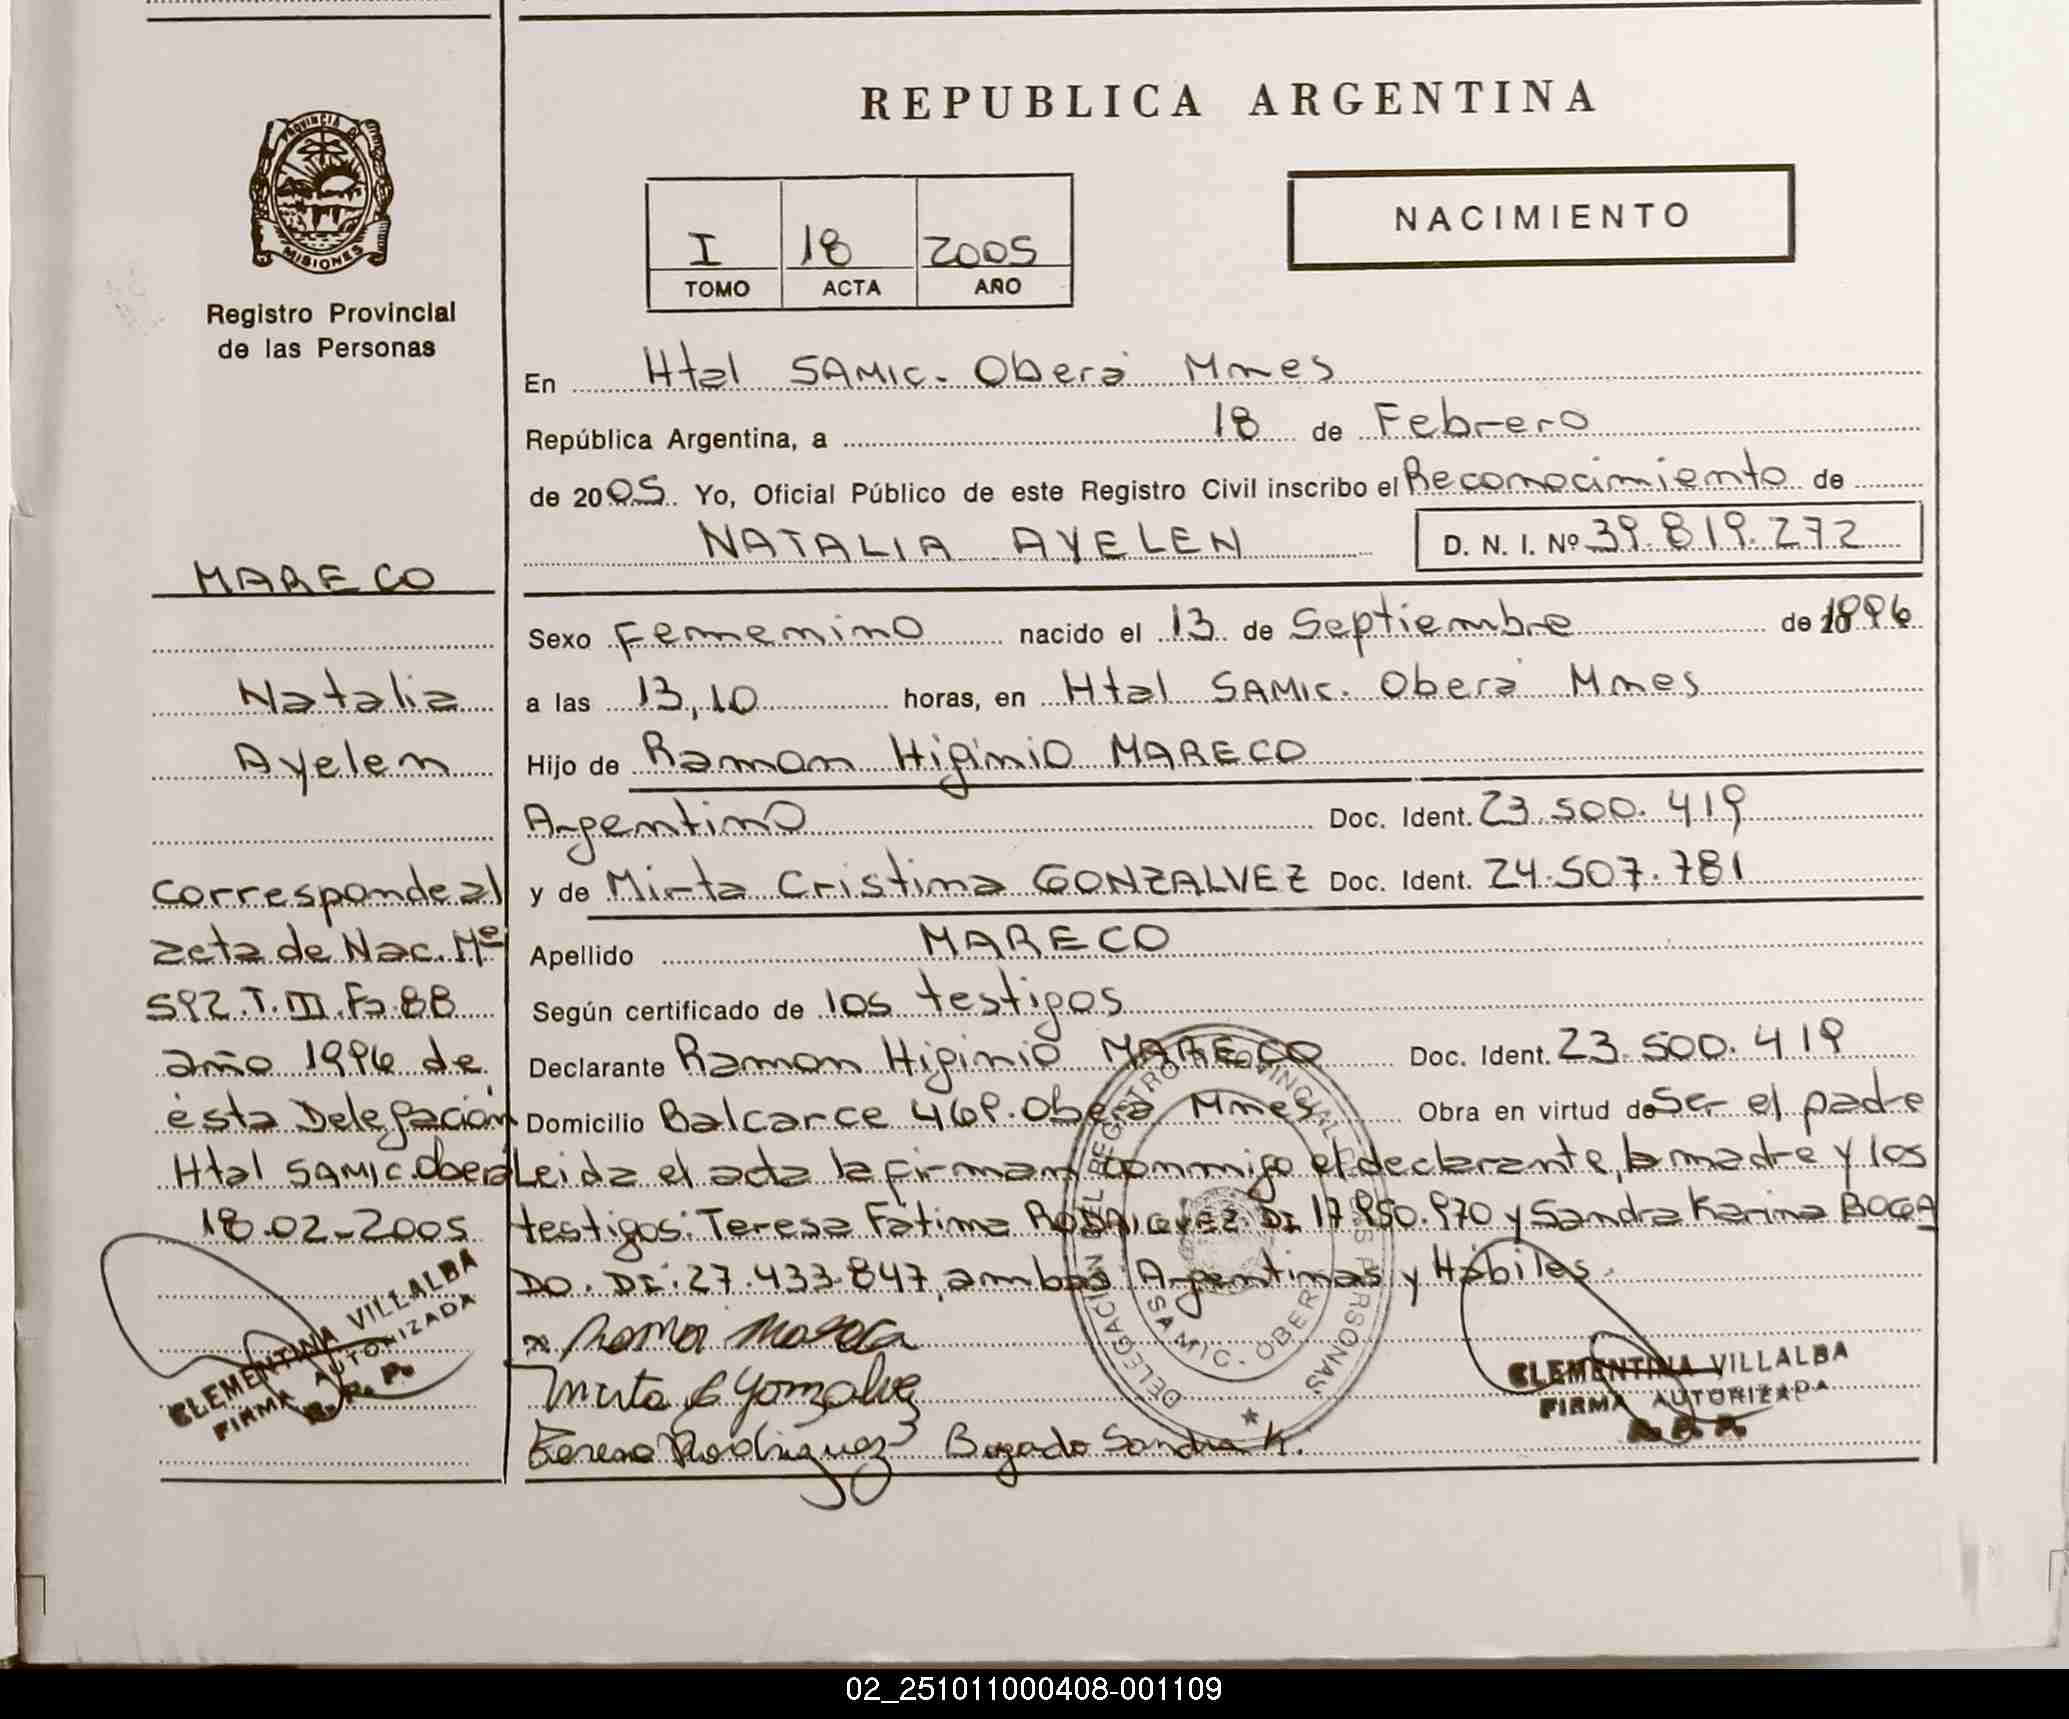 REPUBLICA ARGENTINA
PROVINCIA DE
MISIONES
Registro Provincial
de las Personas
I 18 2005
TOMO ACTA AÑO
NACIMIENTO
MARECO
Natalia
Ayelen
corresponde al
acta de Nac. Nº
592.T.III.Fº.88
año 1996 de
ésta Delegación
Htal SAMIC.Oberá
18.02-2005
CLEMENTINA VILLALBA
FIRMA AUTORIZADA
R. P. P.
En Htal SAMIC. Oberá Mnes
República Argentina, a 18 de Febrero
de 2005 Yo, Oficial Público de este Registro Civil inscribo el Reconocimiento de
NATALIA AYELEN D. N. I. Nº 39.819.272
Sexo Femenino nacido el 13 de Septiembre de 1996
a las 13,10 horas, en Htal SAMIC. Oberá Mnes
Hijo de Ramon Higinio MARECO
Argentino Doc. Ident. 23.500.419
y de Mirta Cristina GONZALVEZ Doc. Ident. 24.507.781
Apellido MARECO
Según certificado de los testigos
Declarante Ramon Higinio MARECO Doc. Ident. 23.500.419
Domicilio Balcarce 469.Oberá Mnes Obra en virtud de Ser el padre
Leida el acta la firman conmigo el declarante, la madre y los
testigos: Teresa Fátima RODRIGUEZ DI 17.950.970 y Sandra Karina BOGA
DO. DI: 27.433.847, ambas Argentinas y Hábiles.
Mirta C Gonzalvez
Teresa Rodriguez Bogado Sandra K.
DELEGACION DEL REGISTRO PROVINCIAL DE LAS PERSONAS
SAMIC - OBERA
CLEMENTINA VILLALBA
FIRMA AUTORIZADA
R. P. P.
02_251011000408-001109